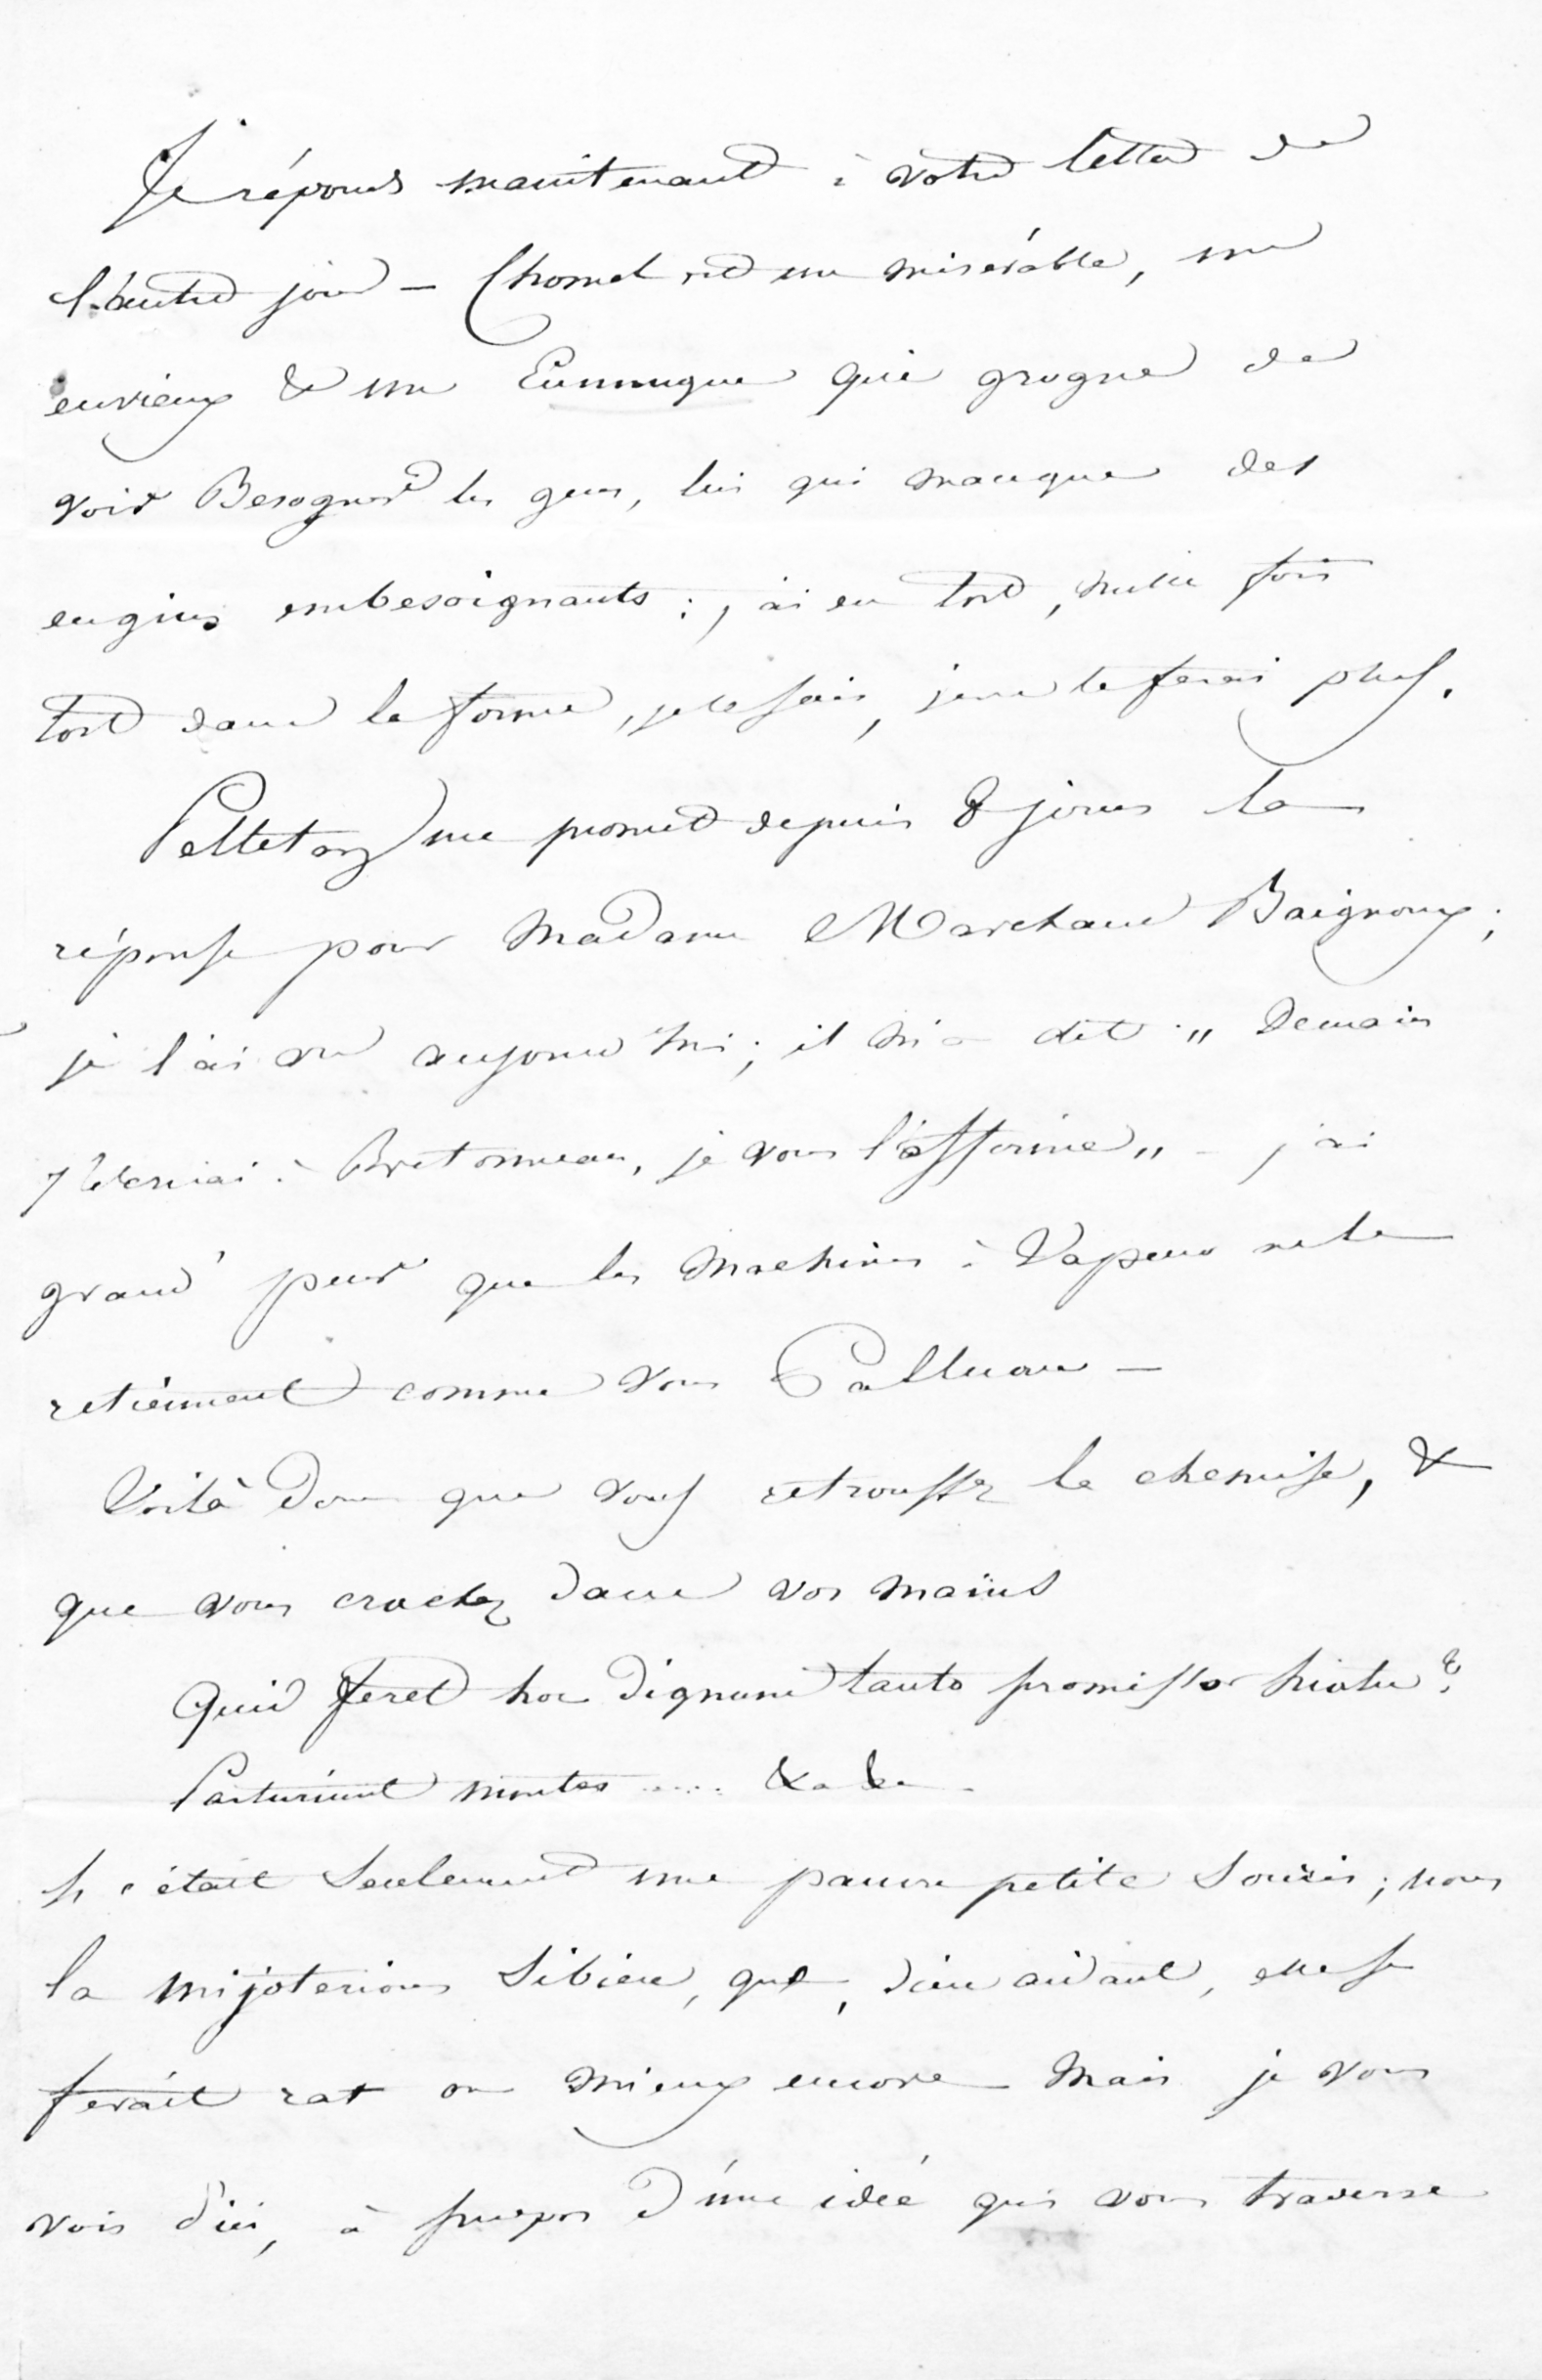 Je réponds maintenant à votre lettre de
l'autre jour – Chomel est un misérable, un
envieux & un Eunuque qui grogne de
voir Besogner les gens, lui qui manque des
engins embesoignants ; j'ai eu tort, mille fois
tort dans la forme, je le sais, je ne le ferai plus.
Pelletan me promet depuis 8 jours la
réponse pour Madame Marchand Baignoux ;
je l'ai vu aujourd'hui ; il m'a dit „ Demain
j'écrirai à Bretonneau, je vous l'affirme „ – j'ai
grand' peur que les Machines à Vapeur ne le
retiennent comme vous Palluau –
Voilà donc que vous retroussez la chemise, &
que vous crachez dans vos mains
Quid feret hoc dignum tanto promissor hiatu ?
Parturiunt montes .... &a &a
Si c'était Seulement une pauvre petite Souris ; nous
la mijoterions Si bien, que, dieu aidant, elle se
ferait rat ou mieux encore – Mais je vous
vois d'ici, à propos d'une idée qui vous traverse